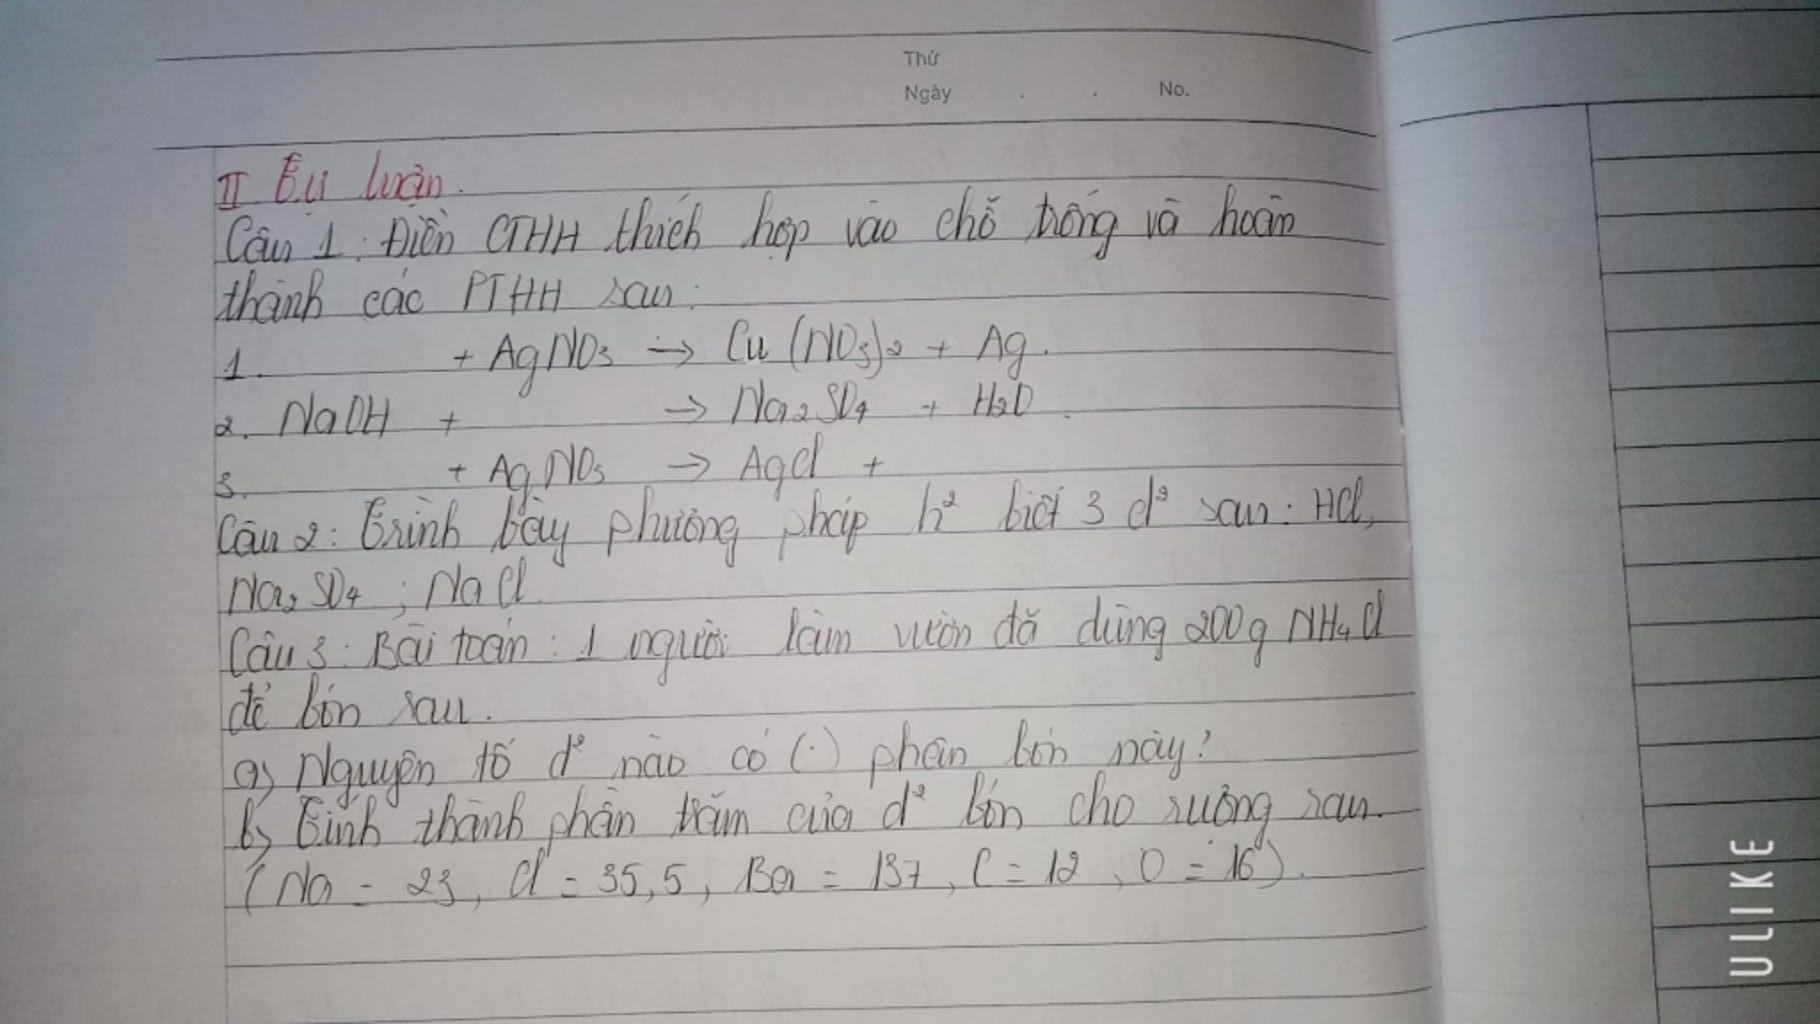 Thứ
Ngày . . No.
II Tự luận.
Câu 1: Điền CTHH thích hợp vào chỗ trống và hoàn
thành các PTHH sau:
1. + AgNO3 → Cu(NO3)2 + Ag.
2. NaOH + → Na2SO4 + H2O.
3. + AgNO3 → AgCl +
Câu 2: Trình bày phương pháp h² biết 3 d² sau: HCl,
Na2SO4; NaCl.
Câu 3: Bài toán: 1 người làm vườn đã dùng 200g NH4Cl
để bón rau.
a) Nguyên tố d² nào có (.) phân bón này?
b) Tính thành phần trăm của d² bón cho ruộng rau.
(Na = 23, Cl = 35,5, Ba = 137, C = 12, O = 16).
ULIKE